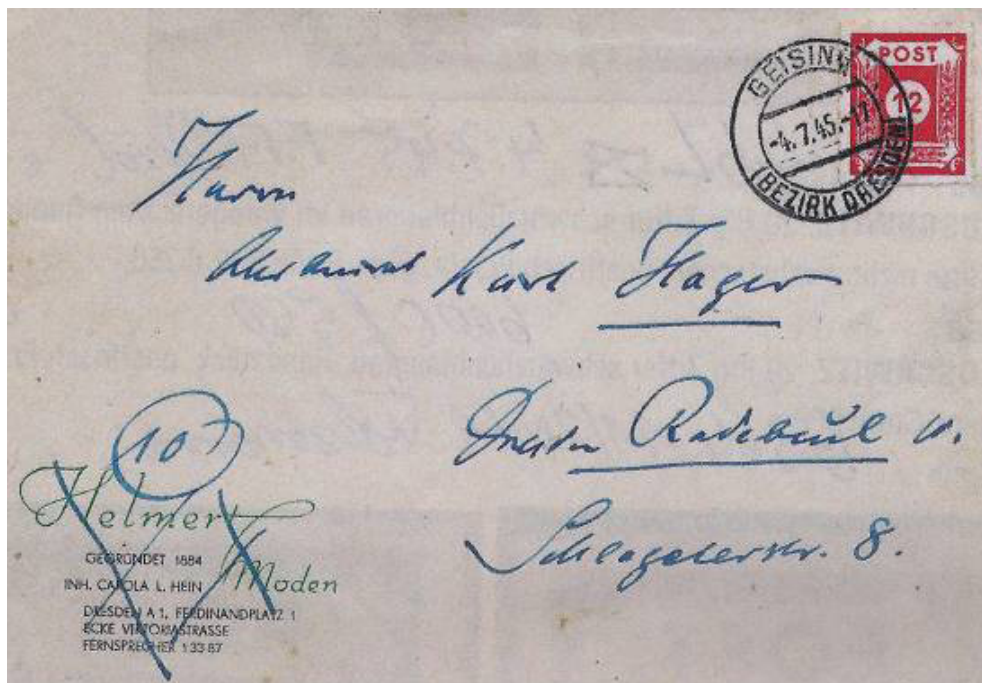 POST
12
GEISING
-4.7.45.-17
(BEZIRK DRESDEN)
Herrn
Karl Hager
Dresden Radebeul W.
Schlageterstr. 8.
10
Helmert
Moden
GEGRÜNDET 1884
INH. CAROLA L. HEIN
DRESDEN A 1, FERDINANDPLATZ 1
ECKE VIKTORIASTRASSE
FERNSPRECHER 1 33 87